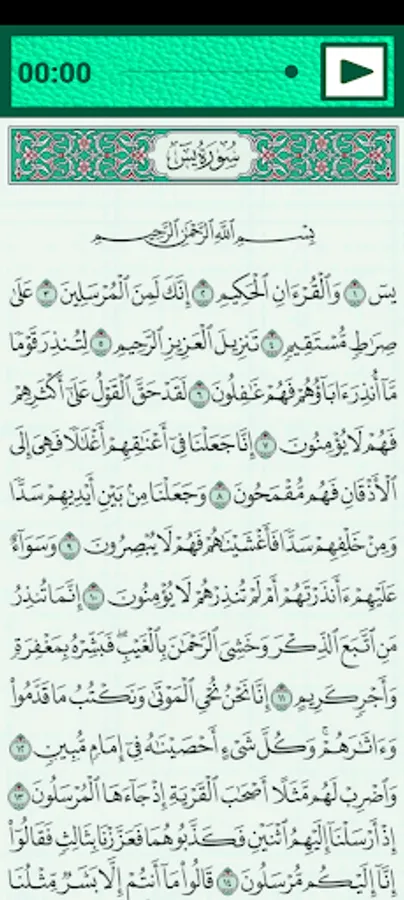 00:00
سُورَةُ يسٓ
بِسْمِ ٱللَّهِ ٱلرَّحْمَٰنِ ٱلرَّحِيمِ
يسٓ ١ وَٱلْقُرْءَانِ ٱلْحَكِيمِ ٢ إِنَّكَ لَمِنَ ٱلْمُرْسَلِينَ ٣ عَلَىٰ
صِرَٰطٍ مُّسْتَقِيمٍ ٤ تَنزِيلَ ٱلْعَزِيزِ ٱلرَّحِيمِ ٥ لِتُنذِرَ قَوْمًا
مَّآ أُنذِرَ ءَابَآؤُهُمْ فَهُمْ غَٰفِلُونَ ٦ لَقَدْ حَقَّ ٱلْقَوْلُ عَلَىٰٓ أَكْثَرِهِمْ
فَهُمْ لَا يُؤْمِنُونَ ٧ إِنَّا جَعَلْنَا فِىٓ أَعْنَٰقِهِمْ أَغْلَٰلًا فَهِىَ إِلَى
ٱلْأَذْقَانِ فَهُم مُّقْمَحُونَ ٨ وَجَعَلْنَا مِنۢ بَيْنِ أَيْدِيهِمْ سَدًّا
وَمِنْ خَلْفِهِمْ سَدًّا فَأَغْشَيْنَٰهُمْ فَهُمْ لَا يُبْصِرُونَ ٩ وَسَوَآءٌ
عَلَيْهِمْ ءَأَنذَرْتَهُمْ أَمْ لَمْ تُنذِرْهُمْ لَا يُؤْمِنُونَ ١٠ إِنَّمَا تُنذِرُ
مَنِ ٱتَّبَعَ ٱلذِّكْرَ وَخَشِىَ ٱلرَّحْمَٰنَ بِٱلْغَيْبِ ۖ فَبَشِّرْهُ بِمَغْفِرَةٍ
وَأَجْرٍ كَرِيمٍ ١١ إِنَّا نَحْنُ نُحْىِ ٱلْمَوْتَىٰ وَنَكْتُبُ مَا قَدَّمُوا۟
وَءَاثَٰرَهُمْ ۚ وَكُلَّ شَىْءٍ أَحْصَيْنَٰهُ فِىٓ إِمَامٍ مُّبِينٍ ١٢
وَٱضْرِبْ لَهُم مَّثَلًا أَصْحَٰبَ ٱلْقَرْيَةِ إِذْ جَآءَهَا ٱلْمُرْسَلُونَ ١٣
إِذْ أَرْسَلْنَآ إِلَيْهِمُ ٱثْنَيْنِ فَكَذَّبُوهُمَا فَعَزَّزْنَا بِثَالِثٍ فَقَالُوٓا۟
إِنَّآ إِلَيْكُم مُّرْسَلُونَ ١٤ قَالُوا۟ مَآ أَنتُمْ إِلَّا بَشَرٌ مِّثْلُنَا